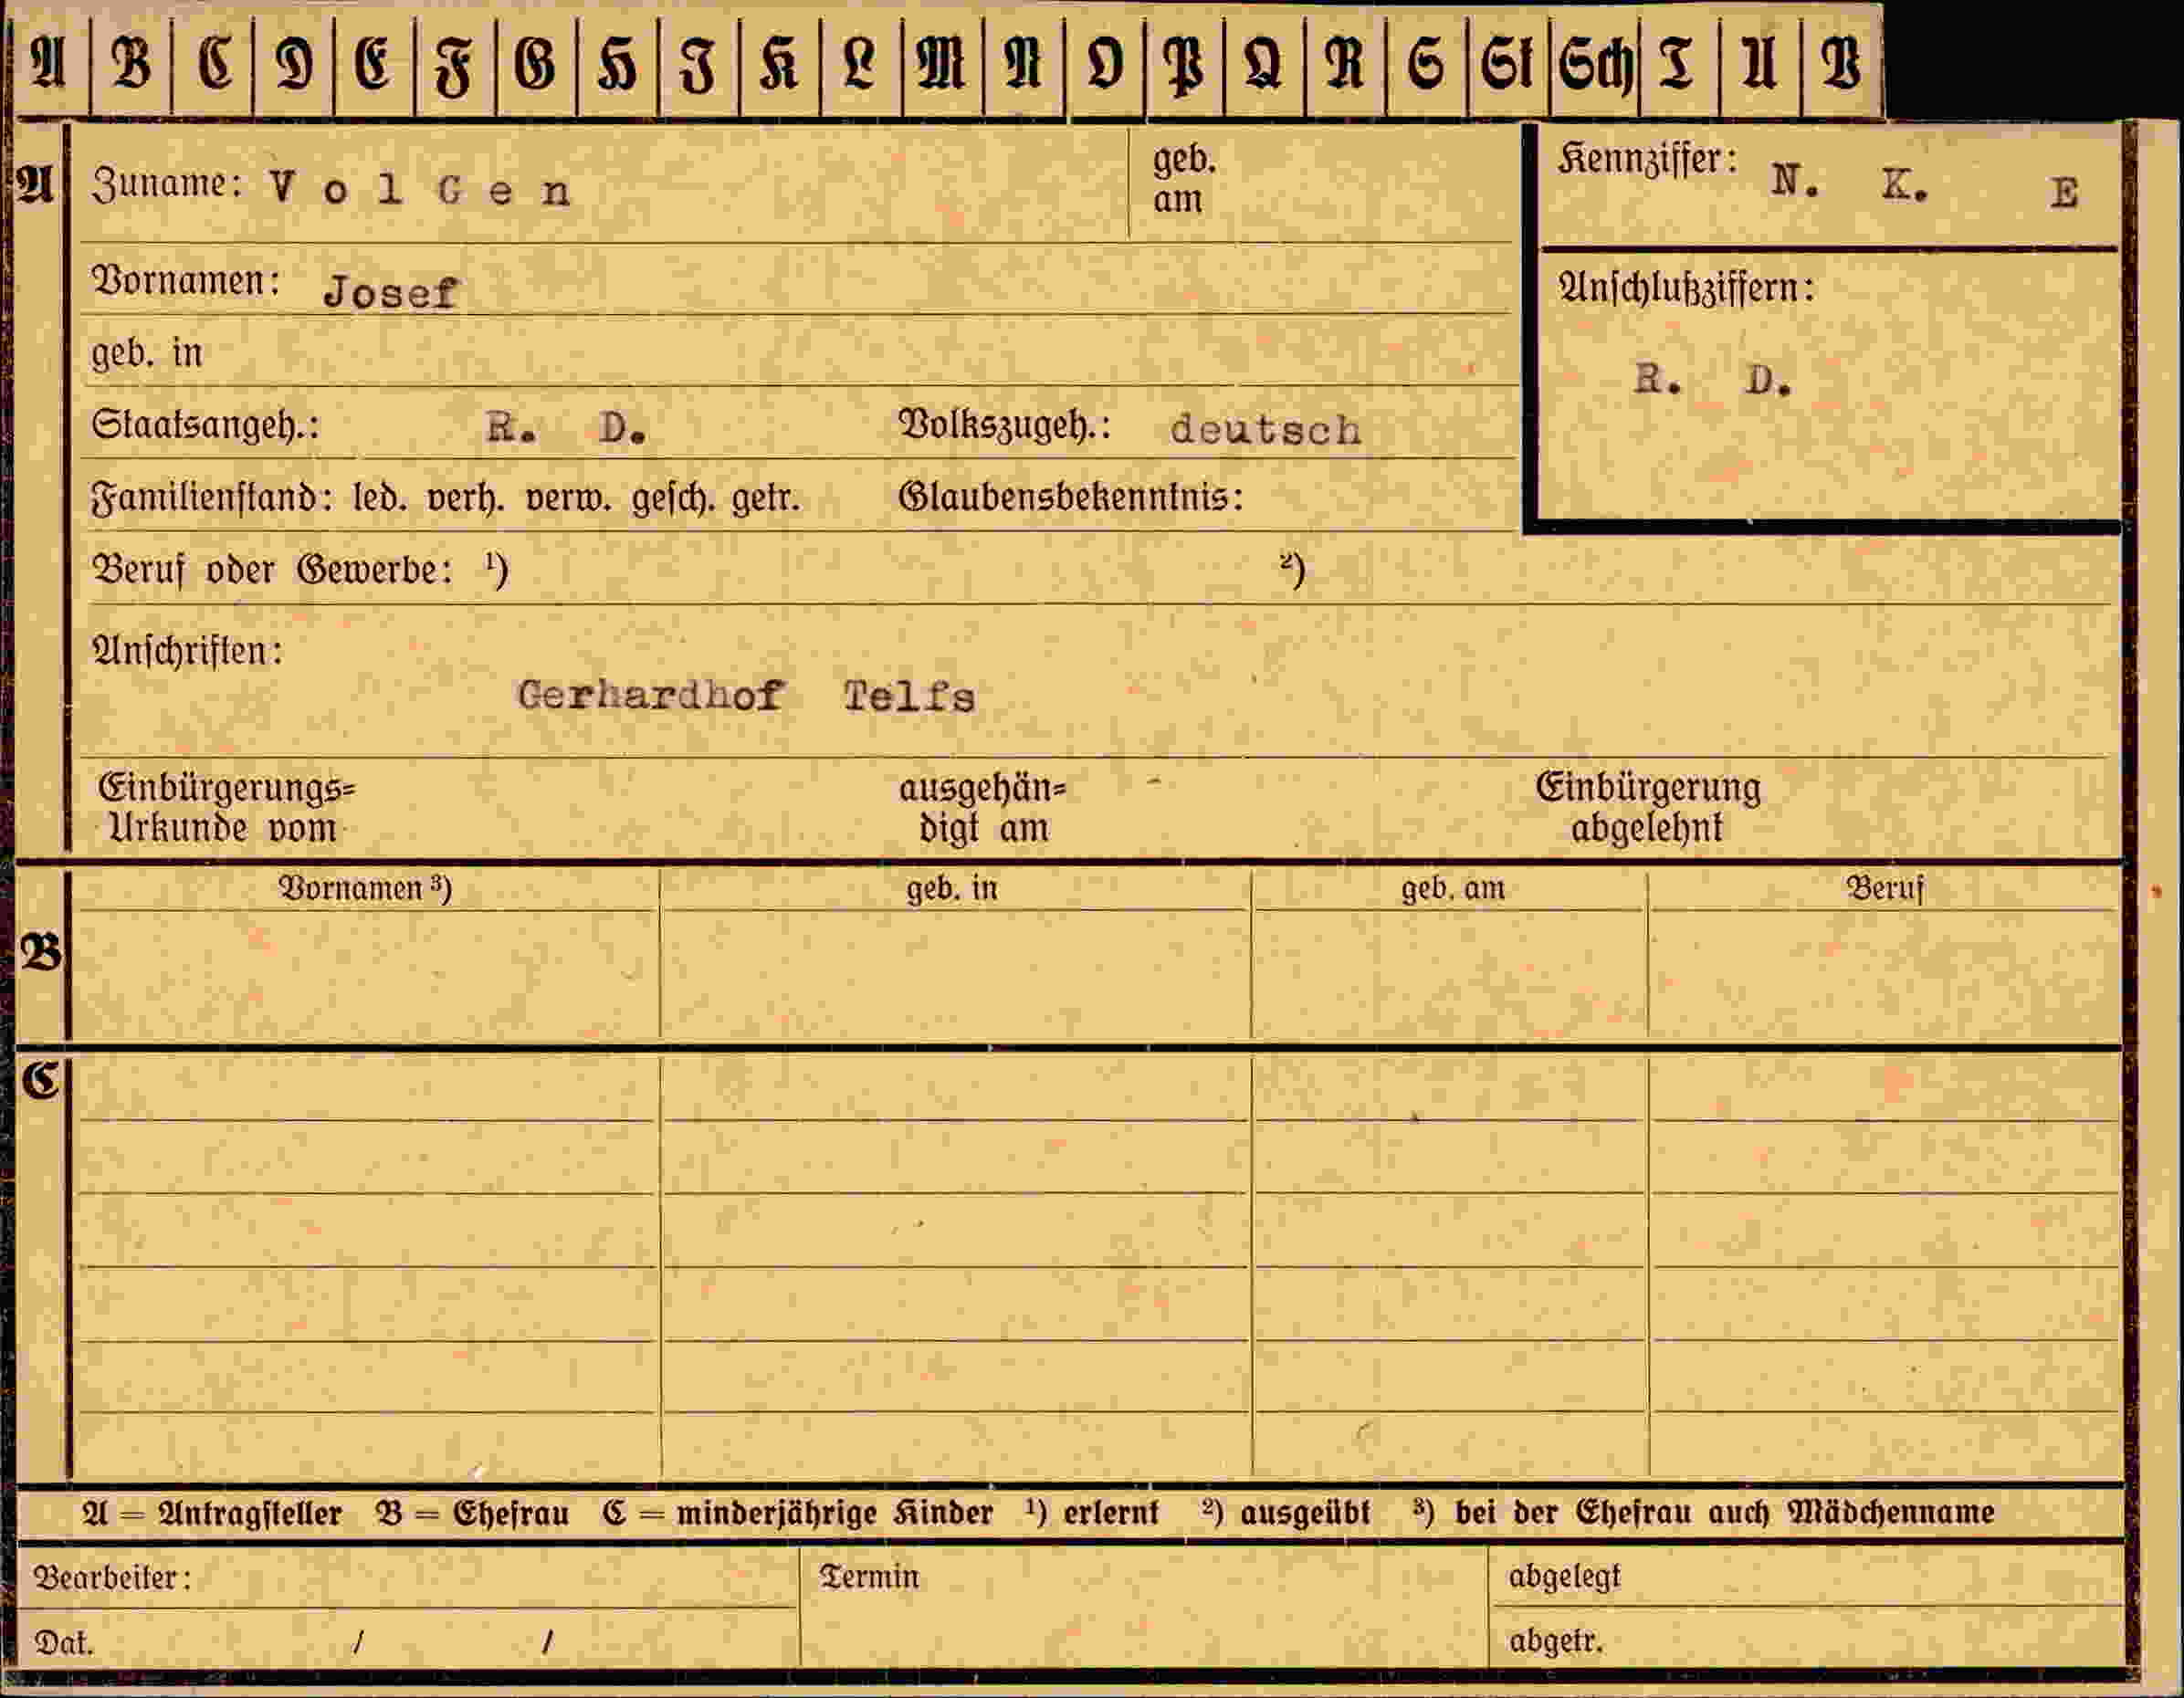 A B C D E F G H J K L M N O P Q R S St Sch T U V
A Zuname: V o l G e n geb. am
Kennziffer: N. K. E
Vornamen: Josef
Anschlußziffern:
geb. in
R. D.
Staatsangeh.: R. D. Volkszugeh.: deutsch
Familienstand: led. verh. verw. gesch. getr. Glaubensbekenntnis:
Beruf oder Gewerbe: ¹) ²)
Anschriften:
Gerhardhof Telfs
Einbürgerungs= ausgehän= Einbürgerung
Urkunde vom digt am abgelehnt
Vornamen ³) geb. in geb. am Beruf
B
C
A = Antragsteller B = Ehefrau C = minderjährige Kinder ¹) erlernt ²) ausgeübt ³) bei der Ehefrau auch Mädchenname
Bearbeiter: Termin abgelegt
Dat. / / abgetr.